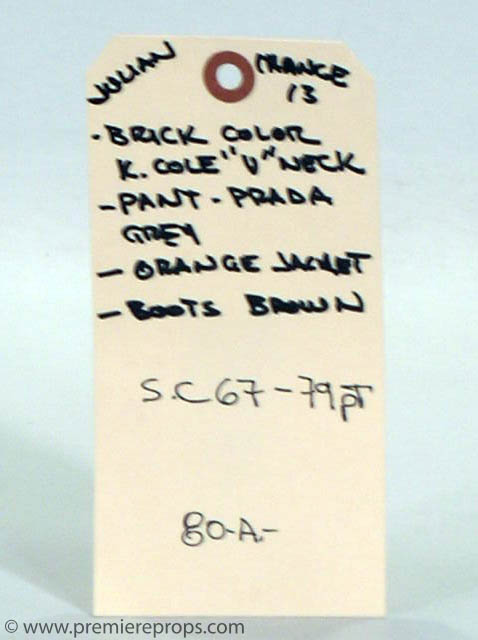 JULIAN ORANGE
13
· BRICK COLOR
K. COLE "V" NECK
- PANT - PRADA
GREY
- ORANGE JACKET
- BOOTS BROWN
S.C 67 - 79 pT
80-A-
© www.premiereprops.com